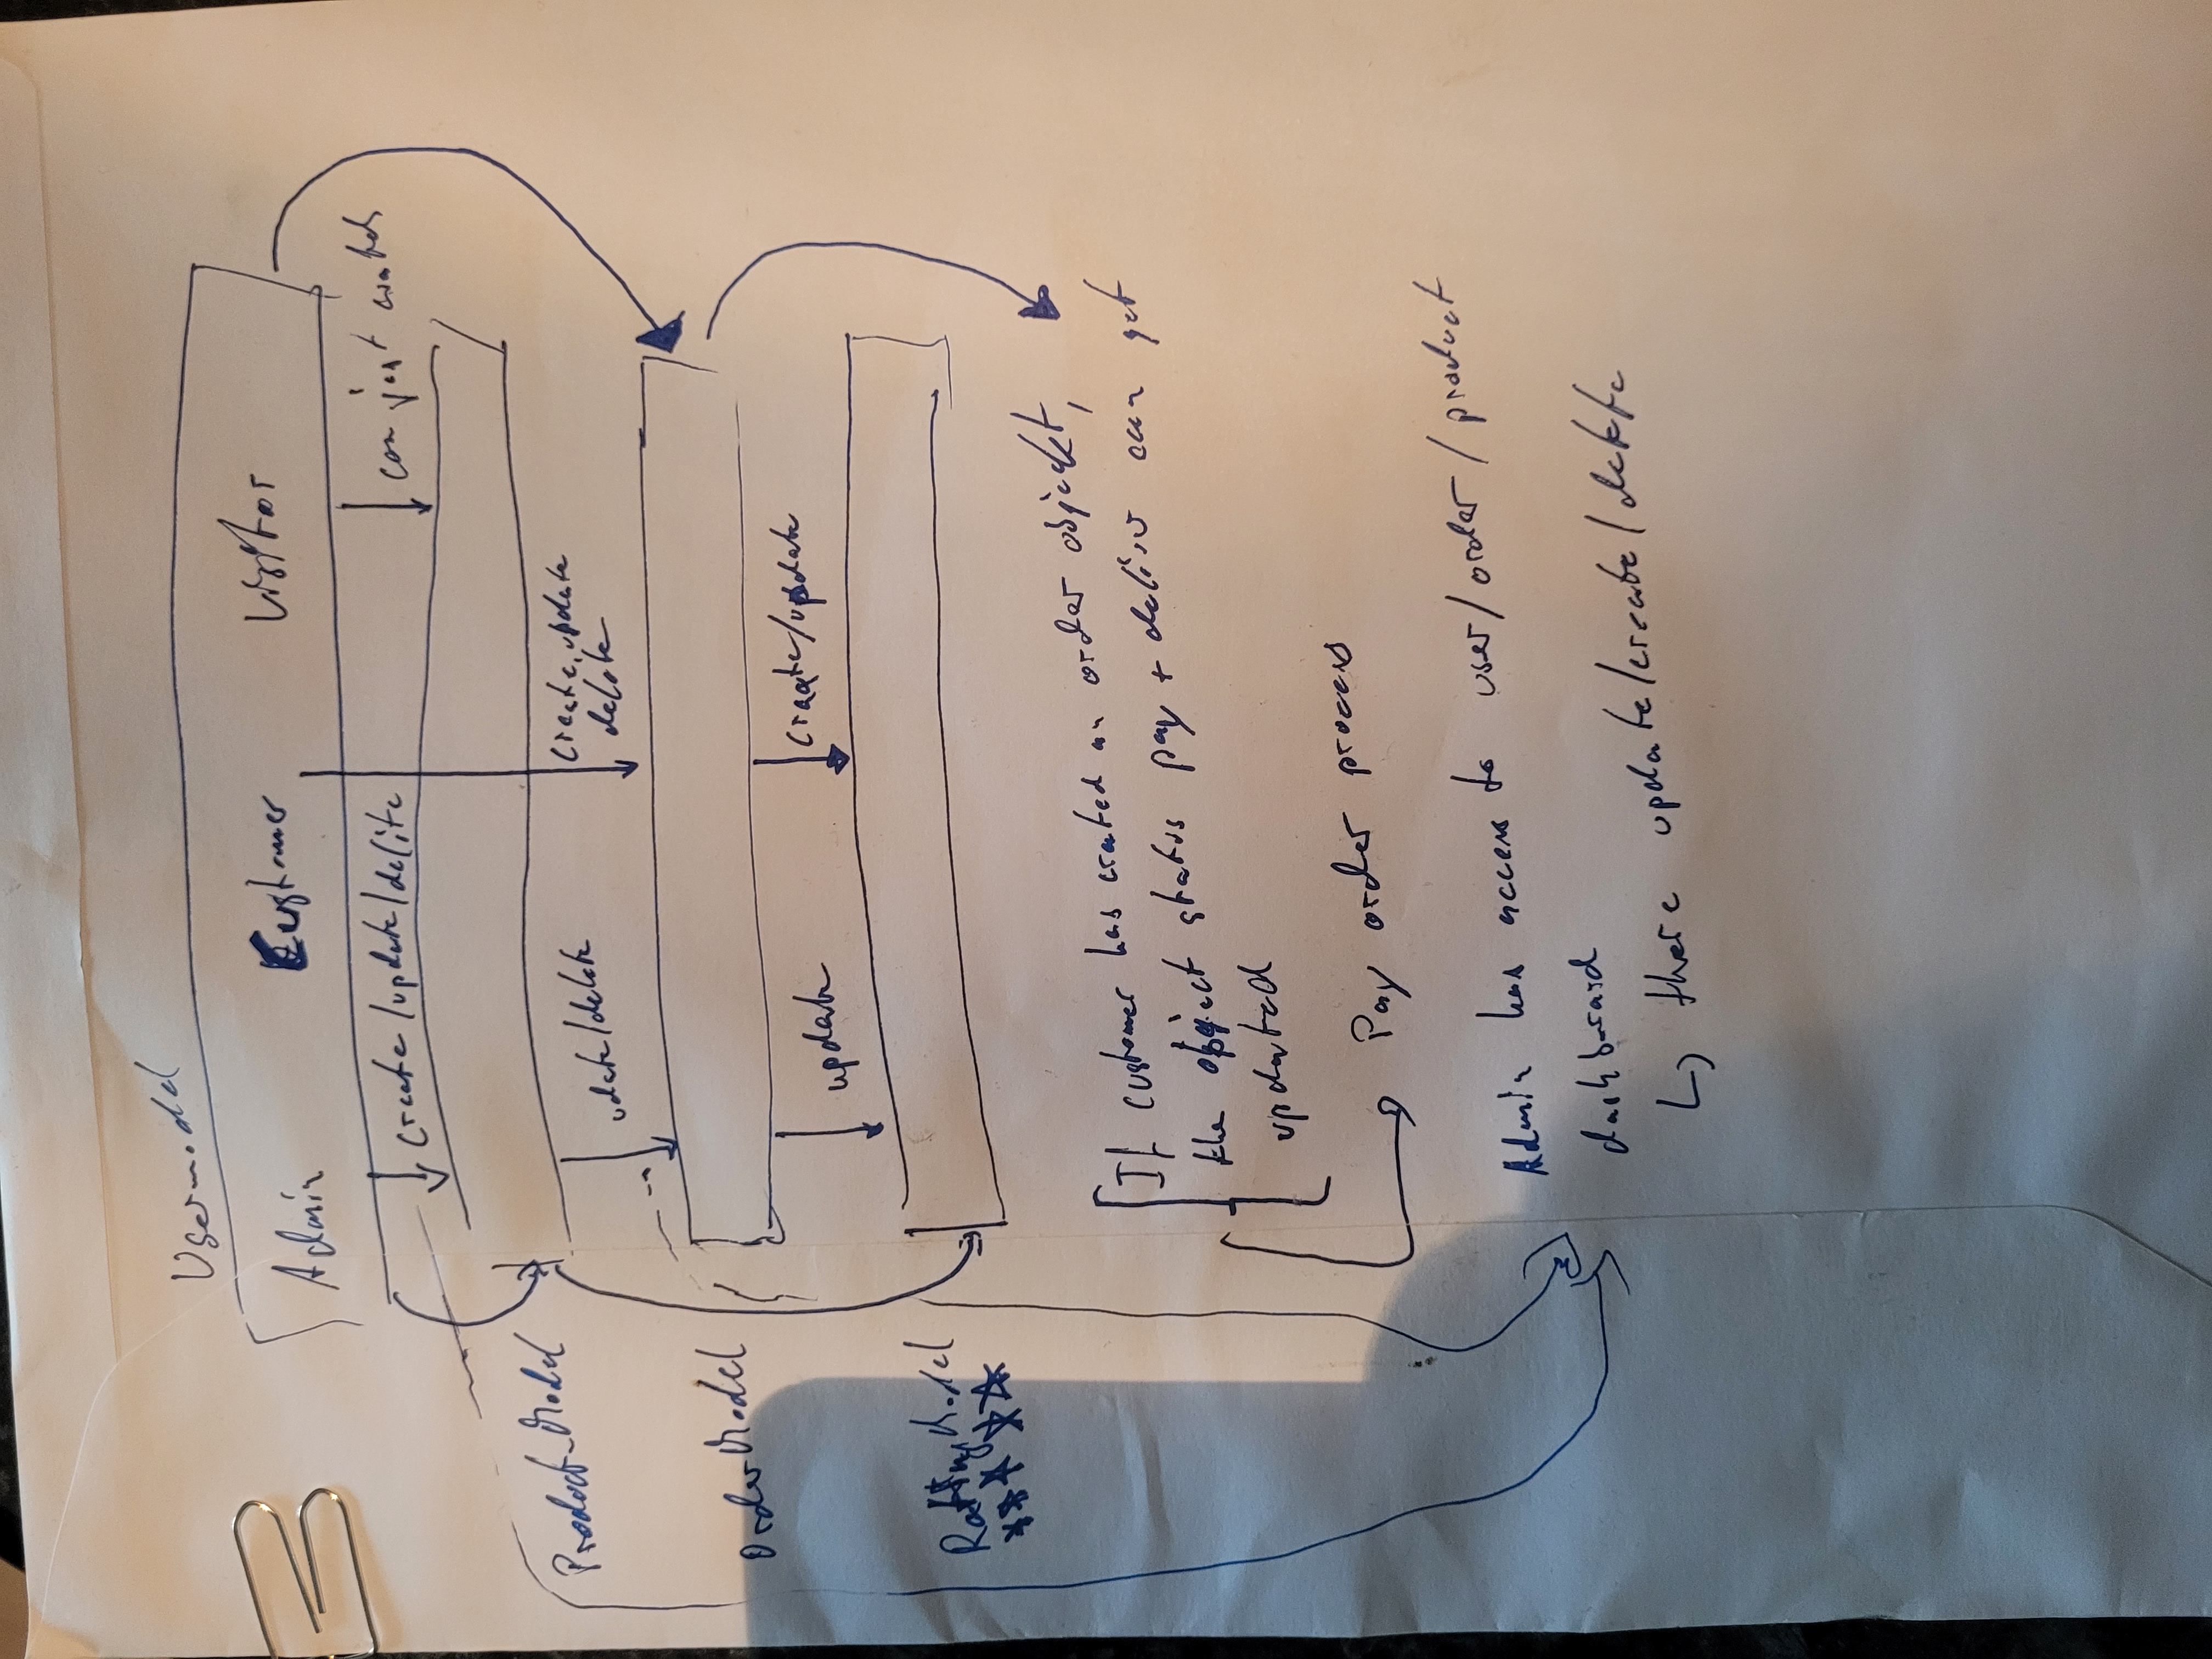 Usermodel
Admin Customer Visitor
create/update/delite can just
Product-Model
udate/delete create, update
delete
OrderModel
update create/update
RattingModel
If customer has created an order objeckt,
the object status pay + deliver can get
updated
Pay order process
Admin has access to user/order/product
dashboard
there update/create/delete